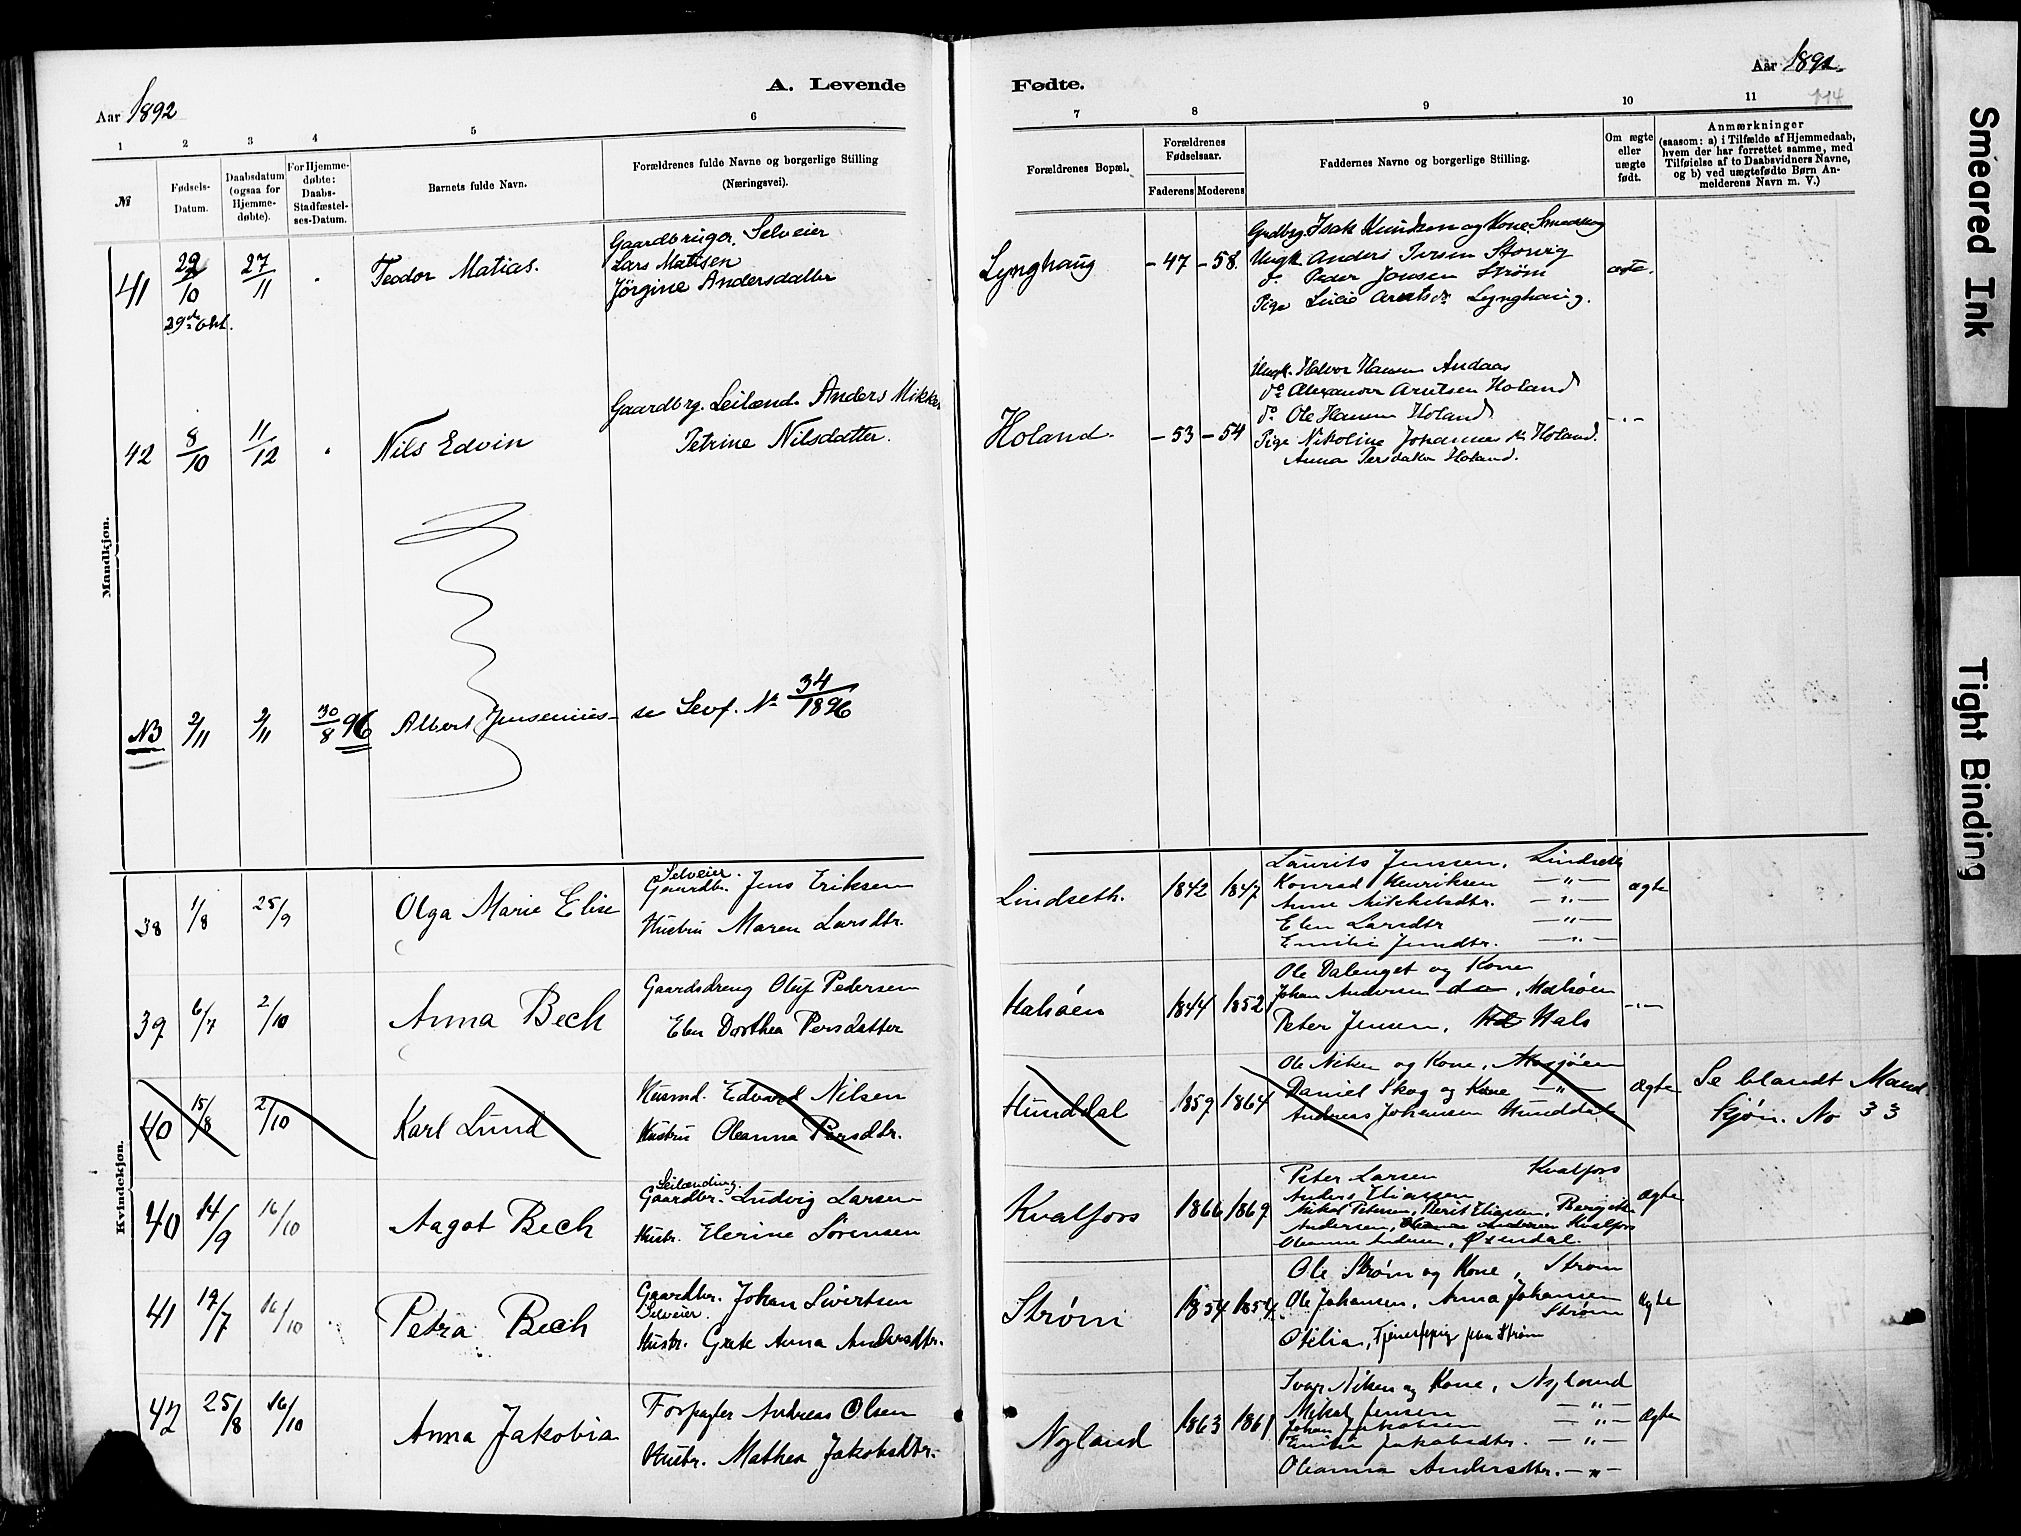 Aar 1892
A. Levende
Fødte.
Aar 1892.
114
1 2 3 4 5 6 7 8 9 10 11
№
Fødsels-
Datum.
Daabsdatum
(ogsaa for
Hjemme-
døbte).
For Hjemme-
døbte:
Daabs-
Stadfæstel-
ses-Datum.
Barnets fulde Navn.
Forældrenes fulde Navne og borgerlige Stilling
(Næringsvei).
Forældrenes Bopæl.
Forældrenes
Fødselsaar.
Faderens Moderens
Faddernes Navne og borgerlige Stilling.
Om ægte
eller
uægte
født.
Anmærkninger
(saasom: a) i Tilfælde af Hjemmedaab,
hvem der har forrettet samme, med
Tilføielse af to Daabsvidners Navne,
og b) ved uægtefødte Børn An-
melderens Navn m. V.)
Mandkjøn.
41 29/10 27/11 Teodor Matias.
29de Okt.
Gaardbruger. Selveier
Lars Matisen
Jörgine Andersdatter
Lynghaug -47 -58.
Grdbrg. Isak Knudsen og Kone Smedseng
Ungk Anders Iversen Storvig
do Peder Jonsen Strøm
Pige Lucie Arntsdr Lynghaug.
ægte.
42 8/10 11/12 Nils Edvin
Gaardbrg. Leilænd. Anders Mikkel
Petrine Nilsdatter.
Holand. -53 -54
Ungk. Halvor Hansen Andaas
do Alexander Arntsen Holand
do Ole Hansen Holand
Pige Nikoline Johannesdr Holand.
Anna Persdatter Holand.
-"-
NB 2/11 2/11 30/8 96 Albert Jensenius - se Levf. No 34/1896
Kvindekjøn.
38 1/8 25/9 Olga Marie Elise
Selveier.
Gaardbr. Jens Eriksen
Hustru Maren Larsdtr.
Lindseth. 1842 1847
Laurits Jenssen, Lindseth
Konrad Henriksen -"-
Anne Mikkelsdtr. -"-
Elen Larsdtr -"-
Emilie Jensdtr. -"-
ægte
39 6/7 2/10 Anna Bech
Gaardsdreng Oluf Pedersen
Elen Dorthea Persdatter
Halsøen 1844 1852
Ole Dalenget og Kone
Johan Andersen do, Halsøen
Peter Jensen, Hals
-"-
40 15/8 2/10 Karl Lund
Husmd. Edvard Nilsen
Hustru Oleanna Persdtr.
Hunddal 1859 1864
Ole Nilsen og Kone, Mosjøen
Daniel Skog og Kone -"-
Andreas Johansen Hunddal
Ægte
Se blandt Mand
kjøn. No 33
40 14/9 16/10 Aagot Bech
Leilænding.
Gaardbr. Ludvig Larsen
Hustr. Elerine Sørensen
Kvalfors 1866 1869
Peter Larsen Kvalfors
Anders Eliassen
Mikal Petersen, Berit Eliassen,
Andersen, Kvalfors
Oleanna Andersen, Øxendal.
Ægte
41 17/7 16/10 Petra Bech
Gaardbr. Johan Sivertsen
Selveier
Hustr. Grete Anna Andersdtr.
Strøm 1854 1854
Ole Strøm og Kone, Strøm
Ole Johansen, Anna Johansen
Strøm
Otelia, Tjenestepig fra Strøm
Ægte
42 25/8 16/10 Anna Jakobia
Forpagter Andreas Olsen
Hustr. Mathea Jakobsdtr.
Nyland 1863 1861
Nilsen og Kone, Nyland
Mikal Jensen -"-
Johan Jakobsen -"-
Emilie Jakobsdtr. -"-
Oleanna Andersdtr. -"-
Ægte
Smeared Ink
Tight Binding